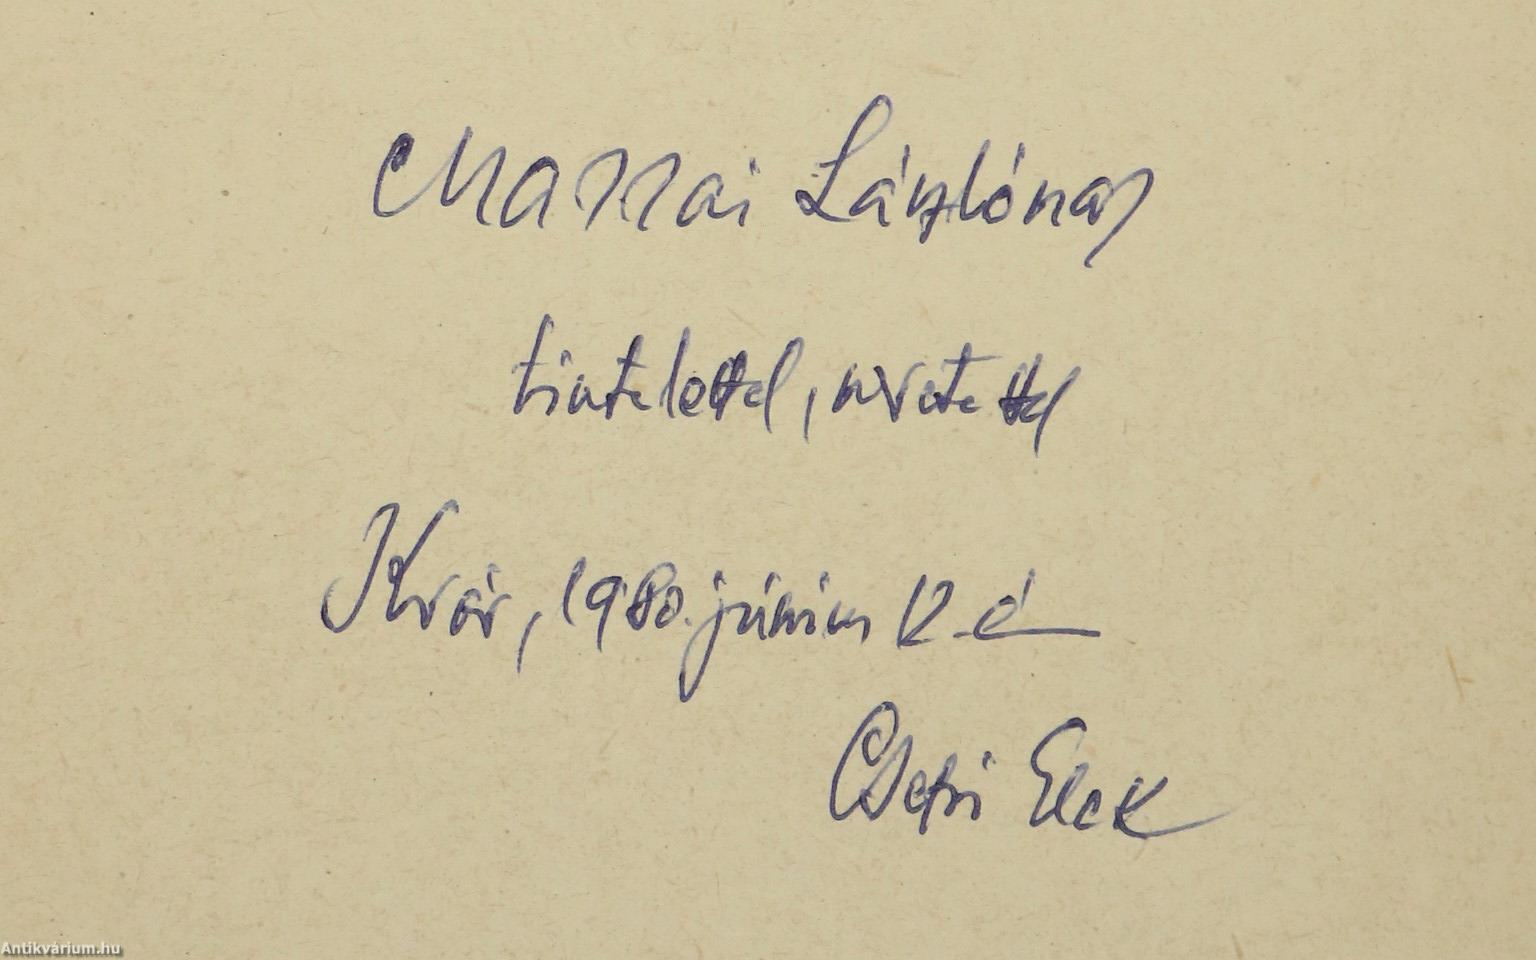 Marrai Lászlónak
tisztelettel, szeretettel
Kvár, 1980. június 12-én
Csetri Elek
Antikvárium.hu